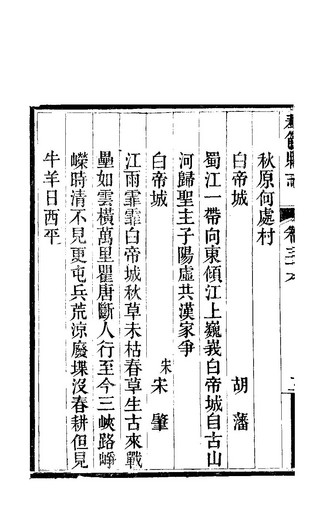 奉節縣志
秋原何處村
白帝城　胡藩
蜀江一帶向東傾江上巍峩白帝城自古山
河歸聖主子陽虛共漢家爭
白帝城　宋　宋肇
江雨霏霏白帝城秋草未枯春草生古來戰
壘如雲橫萬里瞿唐斷人行至今三峽路崢
嶸時清不見更屯兵荒涼廢堞沒春耕但見
牛羊日西平